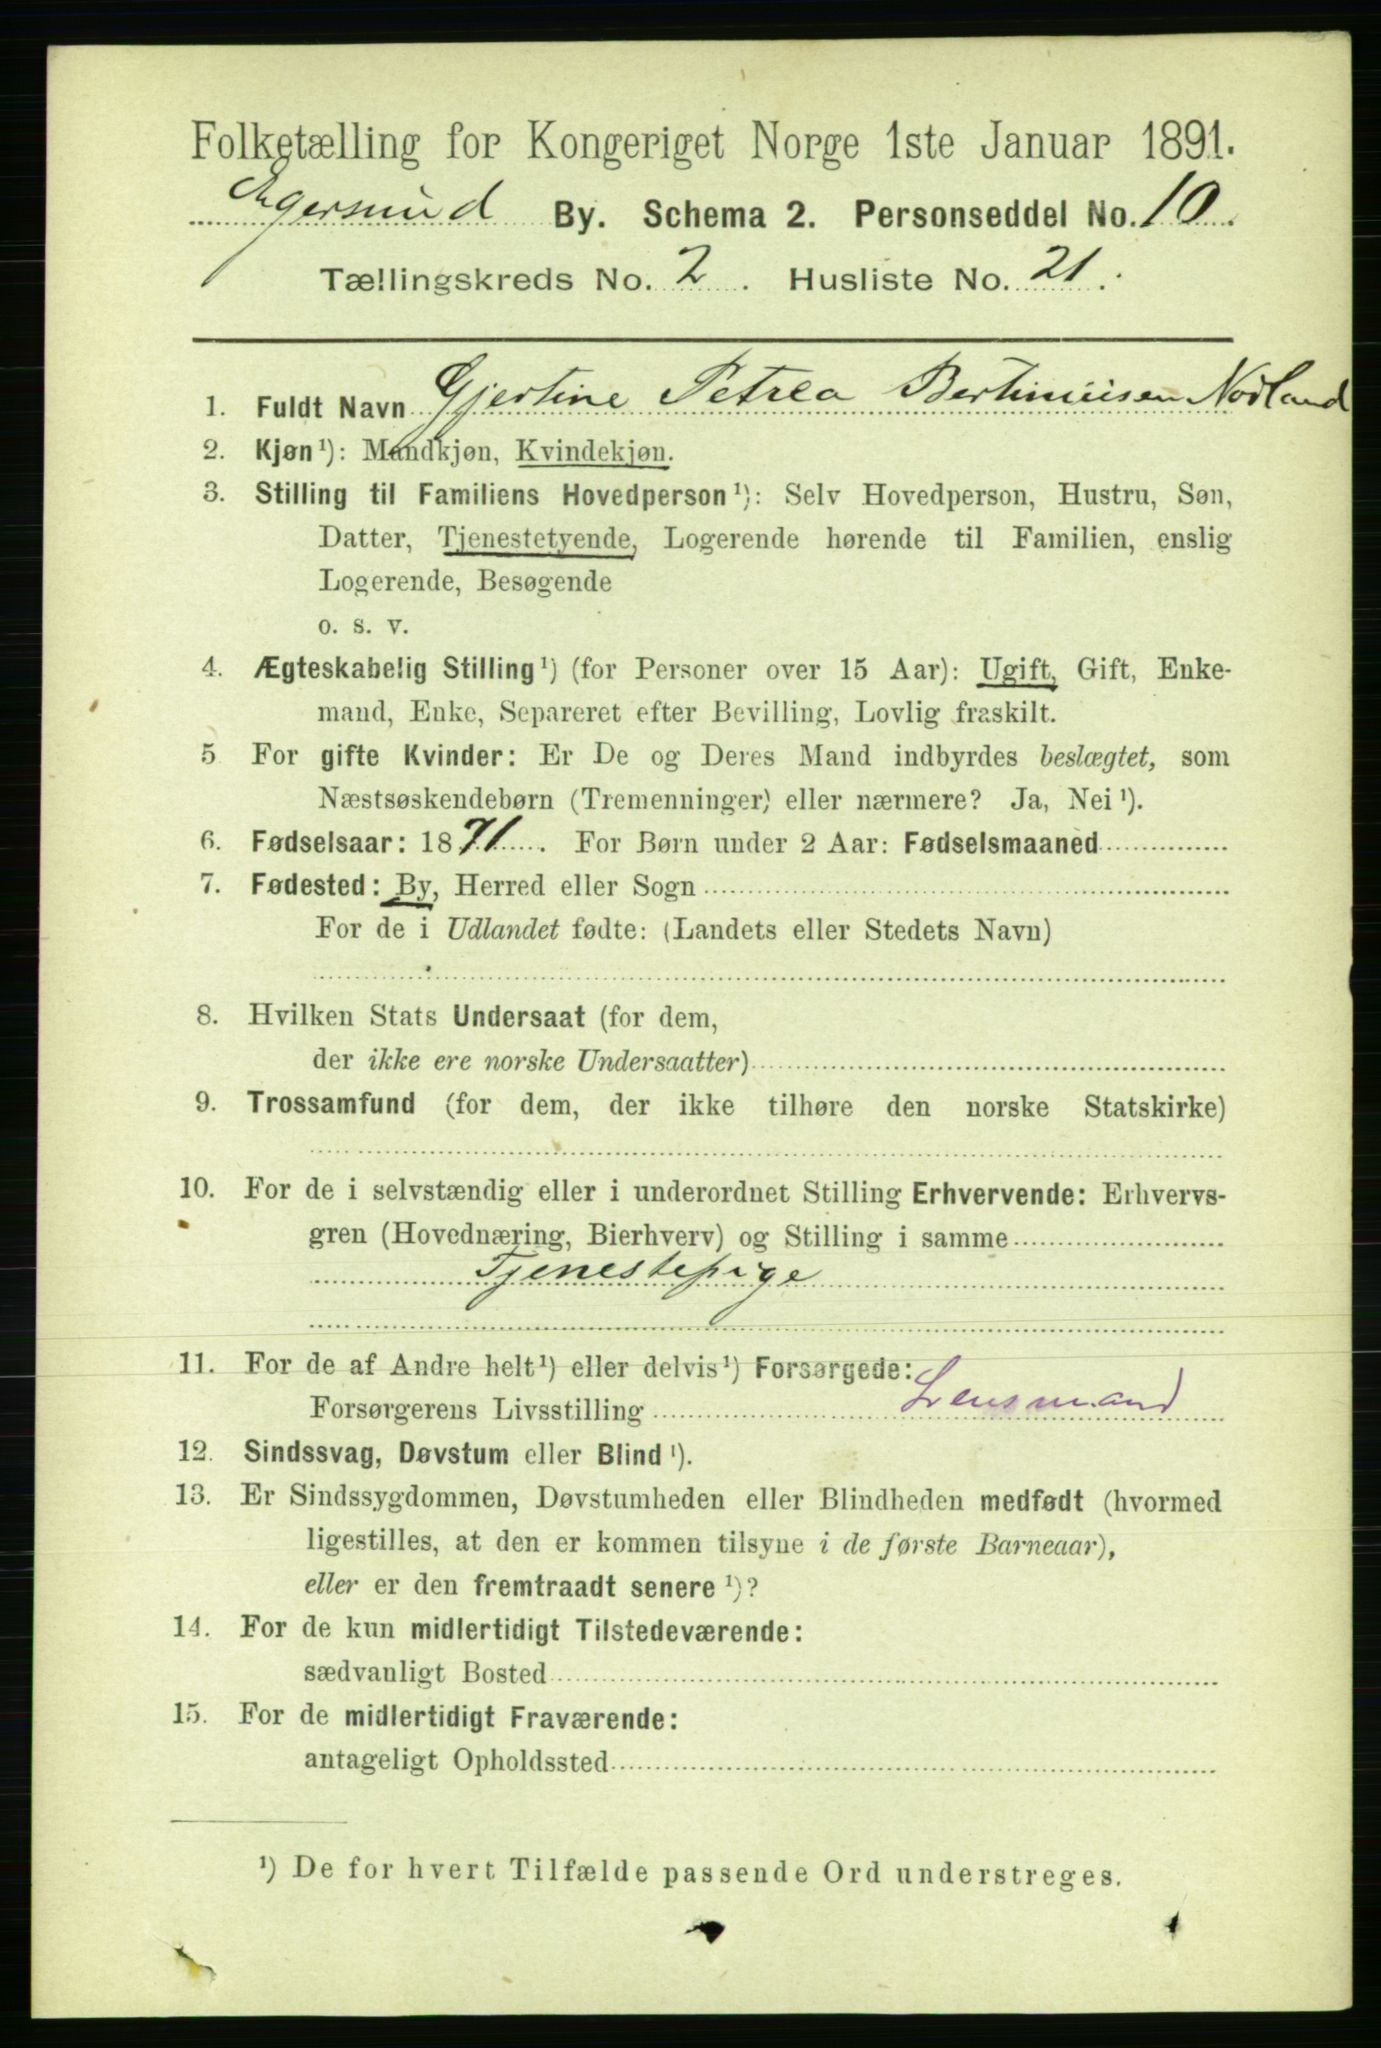 Folketælling for Kongeriget Norge 1ste Januar 1891.
Egersund By. Schema 2. Personseddel No. 10.
Tællingskreds No. 2. Husliste No. 21.
1. Fuldt Navn Gjertine Petrea Bertiniusen Norland
2. Kjøn¹): Mandkjøn, Kvindekjøn.
3. Stilling til Familiens Hovedperson¹): Selv Hovedperson, Hustru, Søn,
Datter, Tjenestetyende, Logerende hørende til Familien, enslig
Logerende, Besøgende
o. s. v.
4. Ægteskabelig Stilling¹) (for Personer over 15 Aar): Ugift, Gift, Enke-
mand, Enke, Separeret efter Bevilling, Lovlig fraskilt.
5 For gifte Kvinder: Er De og Deres Mand indbyrdes beslægtet, som
Næstsøskendebørn (Tremenninger) eller nærmere? Ja, Nei¹).
6. Fødselsaar: 1871. For Børn under 2 Aar: Fødselsmaaned
7. Fødested: By, Herred eller Sogn
For de i Udlandet fødte: (Landets eller Stedets Navn)
8. Hvilken Stats Undersaat (for dem,
der ikke ere norske Undersaatter)
9. Trossamfund (for dem, der ikke tilhøre den norske Statskirke)
10. For de i selvstændig eller i underordnet Stilling Erhvervende: Erhvervs-
gren (Hovednæring, Bierhverv) og Stilling i samme
Tjenestepige
11. For de af Andre helt¹) eller delvis¹) Forsørgede:
Forsørgerens Livsstilling Lensmand
12. Sindssvag, Døvstum eller Blind¹).
13. Er Sindssygdommen, Døvstumheden eller Blindheden medfødt (hvormed
ligestilles, at den er kommen tilsyne i de første Barneaar),
eller er den fremtraadt senere¹)?
14. For de kun midlertidigt Tilstedeværende:
sædvanligt Bosted
15. For de midlertidigt Fraværende:
antageligt Opholdssted
¹) De for hvert Tilfælde passende Ord understreges.